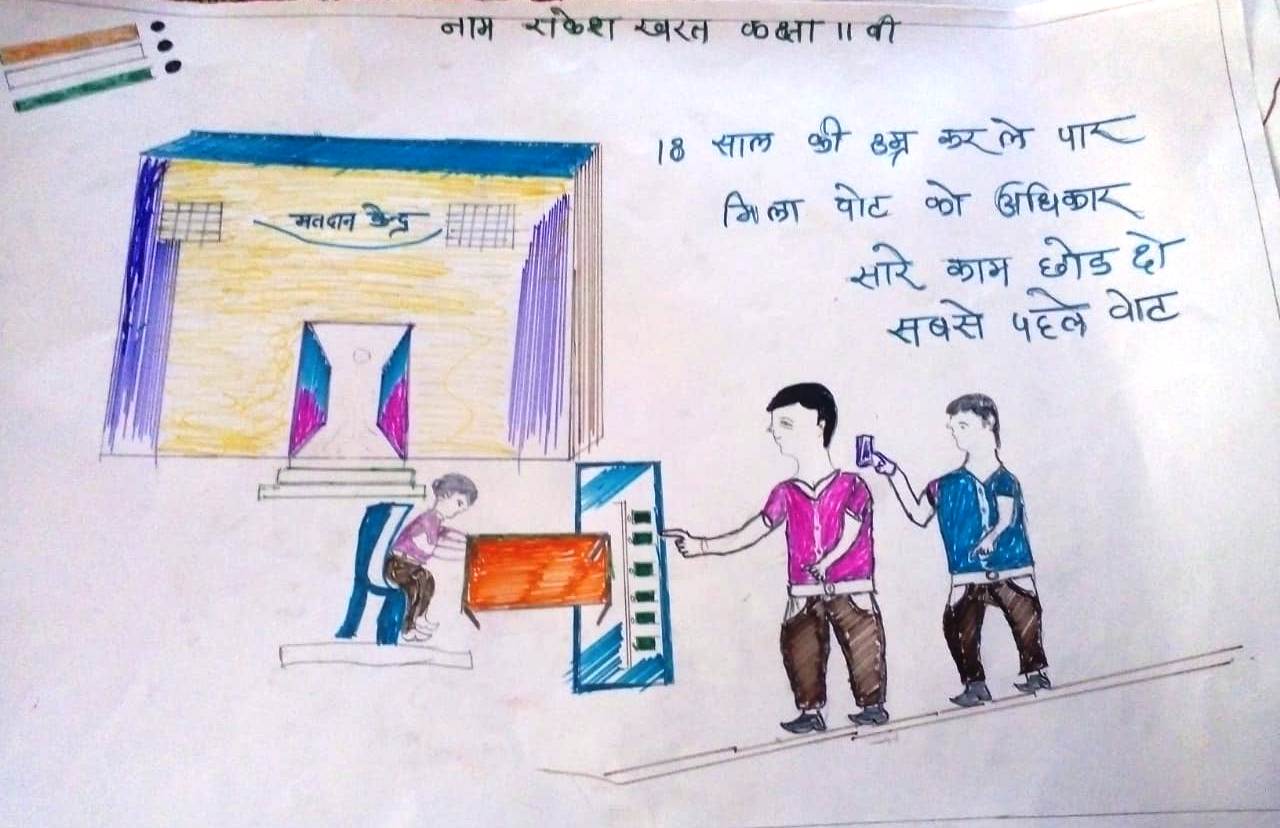 नाम राकेश खरत कक्षा 11 वी
18 साल की उम्र कर ले पार
मिला वोट को अधिकार
सारे काम छोड दो
सबसे पहले वोट
मतदान केन्द्र